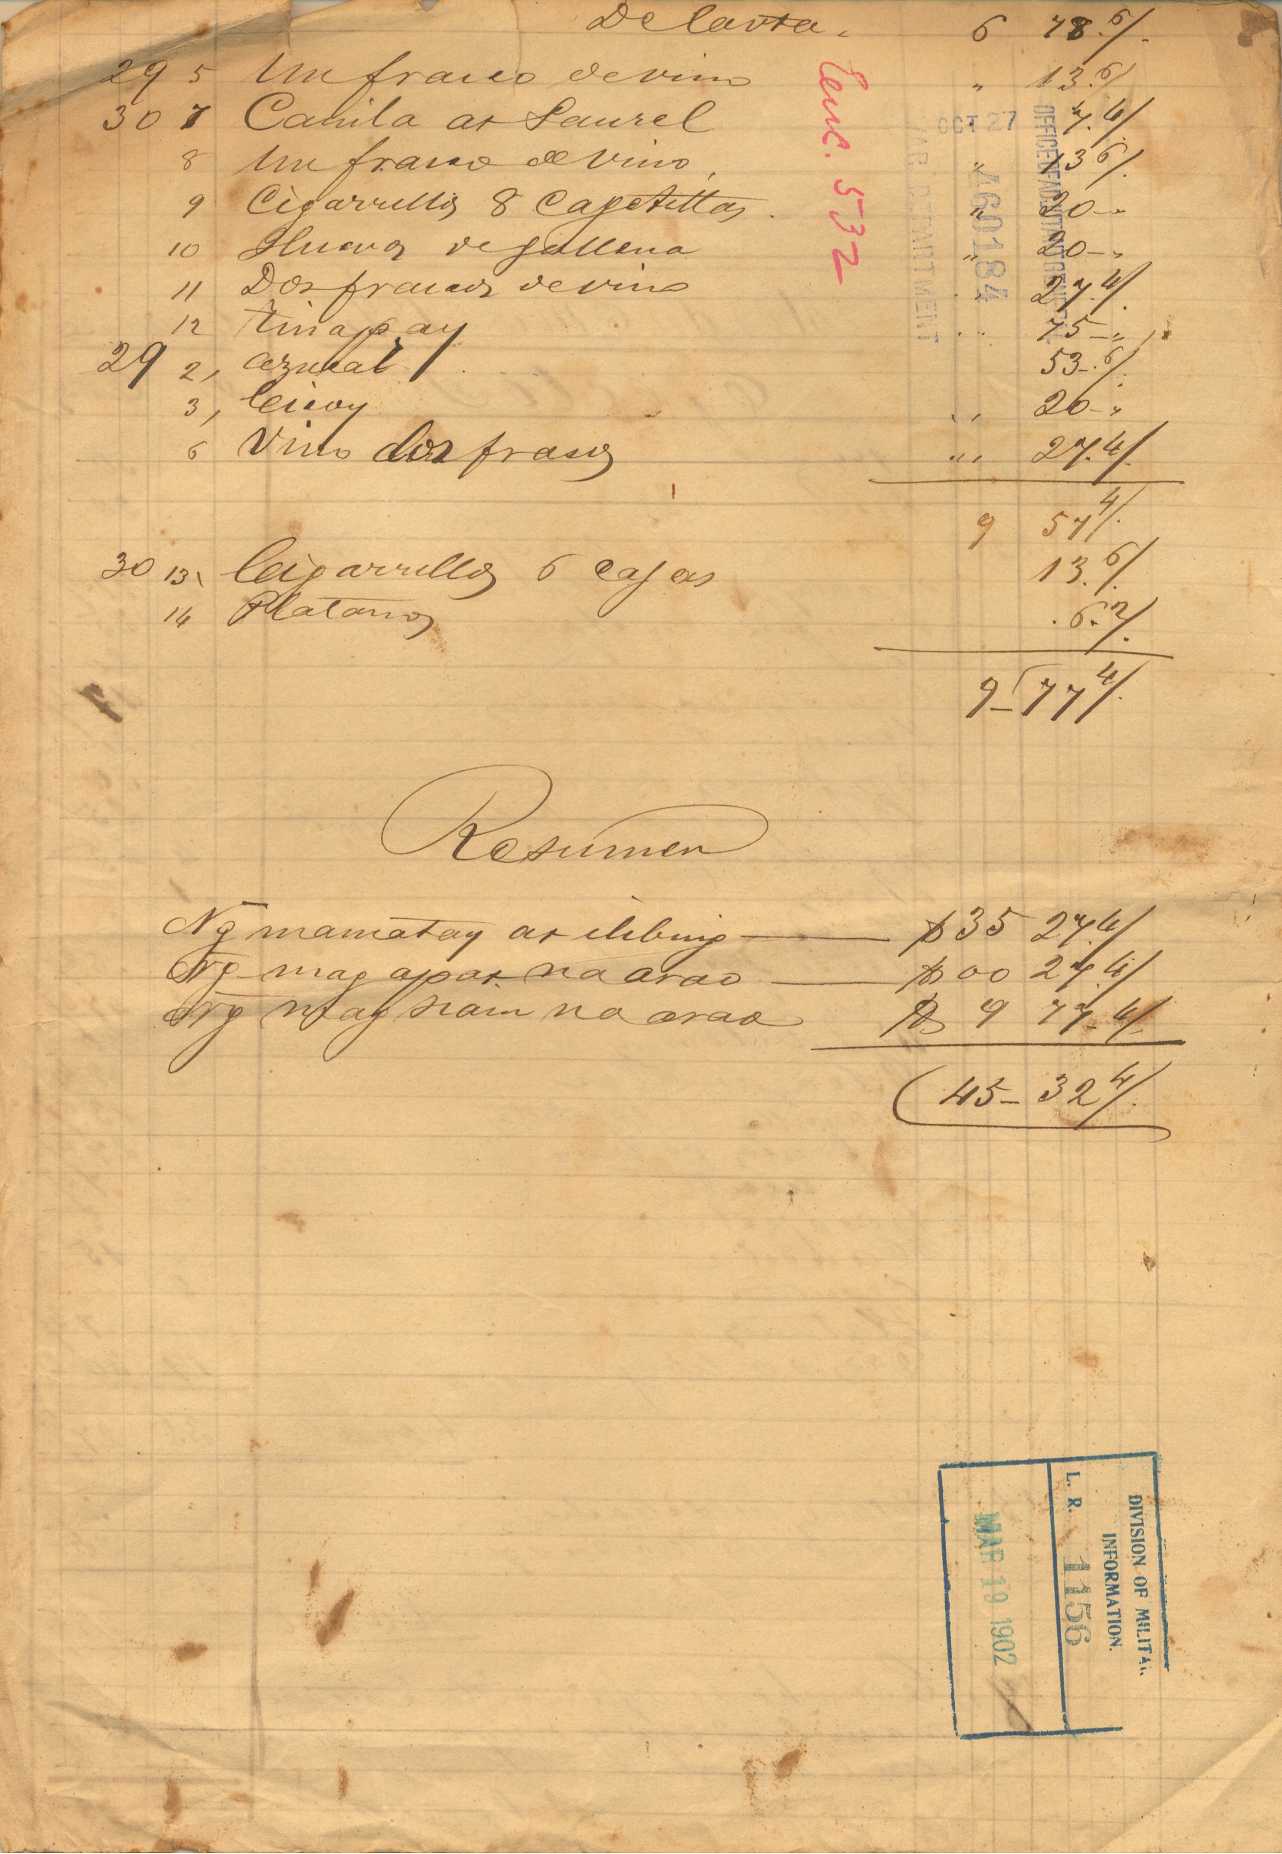 Delavta. 6 78.6/.
29 5 Un frasco de vino " 13.6/
30 7 Canila at Laurel " 7.4/
8 Un frasco de vino, " 13 6/.
9 Cigarrillos 8 Cagetillas. " 20-"
10 Huevos de gallena " 20-"
11 Dos frascos de vino 27.4/.
12 tinapay 75-"
29 2, azucal 53.6/.
3, 20-"
6 Vino dos frascos " 27.4/.
9 57 4/.
30 13, Cigarrillos 6 cajas 13.6/.
14 Platanos .6.2/.
9-77 4/.
Resumen
Ng mamatay at ilibing $ 35 27.4/
Ng mag apat na arao $ 00 27.4/
Ng mag siam na arao $ 9 77.4/
45-32 4/.
Enc. 532
OCT 27
WAR DEPARTMENT
460184
OFFICE OF ADJUTANT GENERAL
DIVISION OF MILITA
INFORMATION.
L. R. 1156
MAR 19 1902